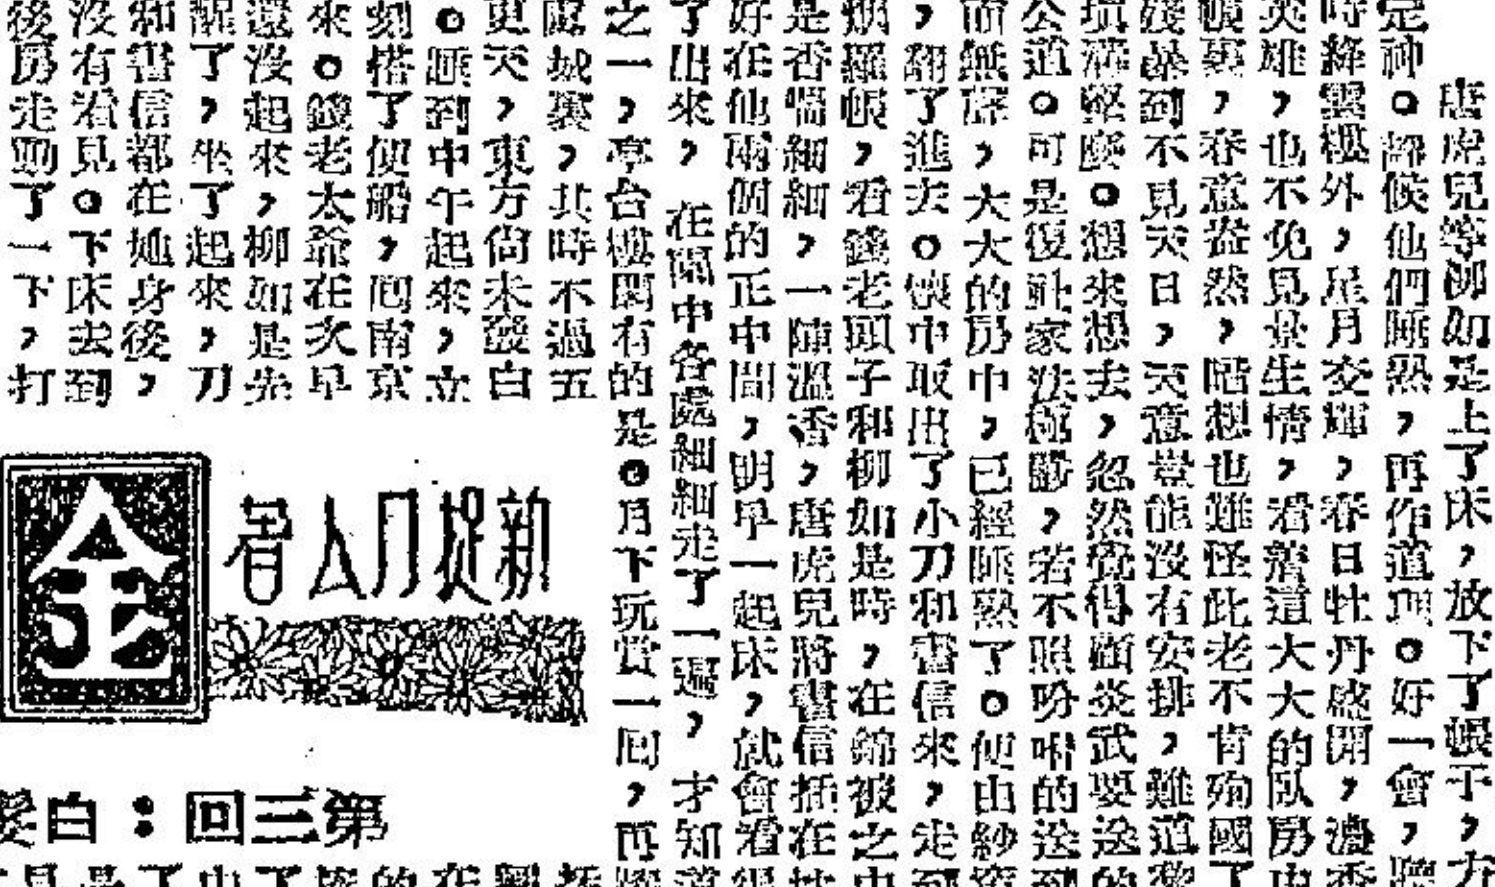 唐虎兒等柳如是上了床，放下了帳子，方
定神。靜候他們睡熟，再作道理。好一會，聽
時絳雲樓外，星月交輝，春日牡丹盛開，濃香
英雄，也不免見景生情，看著這大大的臥房中
帳裏，春意盎然，暗想也難怪此老不肯殉國了
殘暴到不見天日，天意豈能沒有安排，難道黎
填溝壑麼。想來想去，忽然覺得顧炎武要送的
公道。可是復社家法極嚴，若不照吩咐的送到
前無聲，大大的房中，已經睡熟了。便由紗窗
，翻了進去。懷中取出了小刀和書信來，走到
烟羅帳，看錢老頭子和柳如是時，在錦被之中
是香喘細細，一陣溫香，唐虎兒將書信插在枕
好在他兩個的正中間，明早一起床，就會看得
了出來，在閣中各處細細走了一遍，才知道
之一，亭台樓閣有的是。月下玩賞一回，再
處城裏，共時不過五
更天，東方尚未發白
。睡到中午起來，立
刻搭了便船，回南京
來。錢老太爺在次早
還沒起來，柳如是先
醒了，坐了起來，刀
和書信都在她身後，
沒有看見。下床去到
後房走動了一下，打
新捉刀人著
金
第三回：白髮